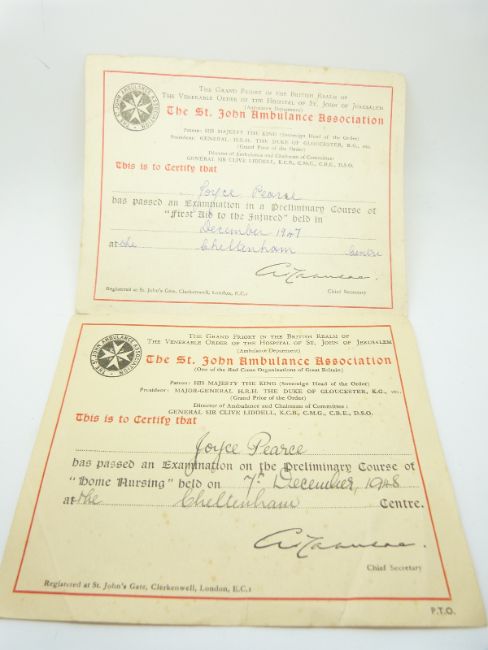 THE GRAND PRIORY IN THE BRITISH REALM OF
THE VENERABLE ORDER OF THE HOSPITAL OF ST. JOHN OF JERUSALEM
(Ambulance Department)
The St. John Ambulance Association
Patron: HIS MAJESTY THE KING (Sovereign Head of the Order)
President: GENERAL H.R.H. THE DUKE OF GLOUCESTER, K.G., etc.
(Grand Prior of the Order)
Director of Ambulance and Chairman of Committee:
GENERAL SIR CLIVE LIDDELL, K.C.B., C.M.G., C.B.E., D.S.O.
This is to Certify that
Joyce Pearce
has passed an Examination in a Preliminary Course of
"First Aid to the Injured" held in
December 1947
at the Cheltenham Centre
Registered at St. John's Gate, Clerkenwell, London, E.C.1
Chief Secretary
THE GRAND PRIORY IN THE BRITISH REALM OF
THE VENERABLE ORDER OF THE HOSPITAL OF ST. JOHN OF JERUSALEM
(Ambulance Department)
The St. John Ambulance Association
(One of the Red Cross Organisations of Great Britain)
Patron: HIS MAJESTY THE KING (Sovereign Head of the Order)
President: MAJOR-GENERAL H.R.H. THE DUKE OF GLOUCESTER, K.G., etc.
(Grand Prior of the Order)
Director of Ambulance and Chairman of Committee:
GENERAL SIR CLIVE LIDDELL, K.C.B., C.M.G., C.B.E., D.S.O.
This is to Certify that
Joyce Pearce
has passed an Examination on the Preliminary Course of
"Home Nursing" held on 7th December, 1948
at the Cheltenham Centre.
Chief Secretary
Registered at St. John's Gate, Clerkenwell, London, E.C.1
P.T.O.